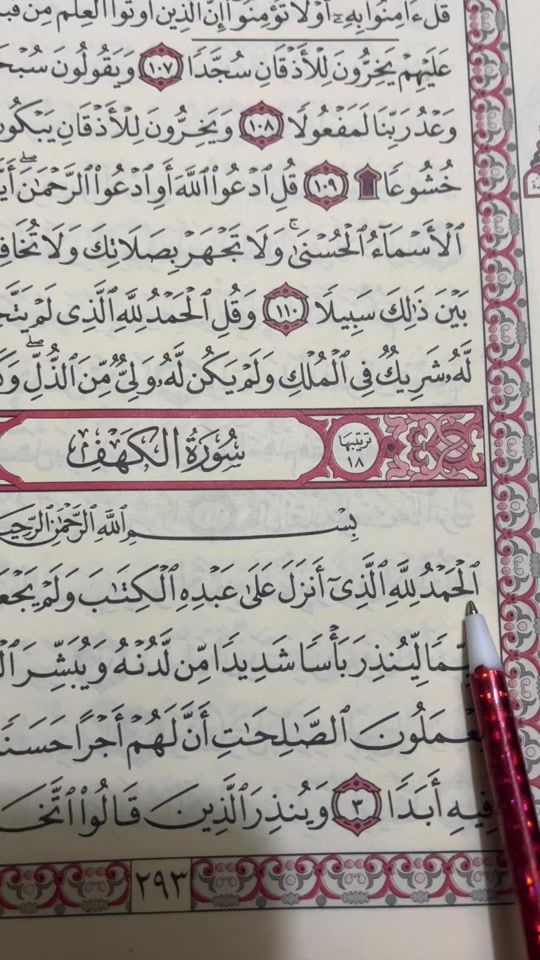 قُلْ ءَامِنُوا۟ بِهِۦٓ أَوْ لَا تُؤْمِنُوٓا۟ ۚ إِنَّ ٱلَّذِينَ أُوتُوا۟ ٱلْعِلْمَ مِن
عَلَيْهِمْ يَخِرُّونَ لِلْأَذْقَانِ سُجَّدًا ١٠٧ وَيَقُولُونَ
وَعْدُ رَبِّنَا لَمَفْعُولًا ١٠٨ وَيَخِرُّونَ لِلْأَذْقَانِ
خُشُوعًا ۩ ١٠٩ قُلِ ٱدْعُوا۟ ٱللَّهَ أَوِ ٱدْعُوا۟ ٱلرَّحْمَٰنَ ۖ
ٱلْأَسْمَآءُ ٱلْحُسْنَىٰ ۚ وَلَا تَجْهَرْ بِصَلَاتِكَ وَلَا
بَيْنَ ذَٰلِكَ سَبِيلًا ١١٠ وَقُلِ ٱلْحَمْدُ لِلَّهِ ٱلَّذِى لَمْ
لَّهُۥ شَرِيكٌ فِى ٱلْمُلْكِ وَلَمْ يَكُن لَّهُۥ وَلِىٌّ مِّنَ ٱلذُّلِّ ۖ
ترتيبها ١٨ سُورَةُ الكَهْفِ
بِسْمِ ٱللَّهِ ٱلرَّحْمَٰنِ
ٱلْحَمْدُ لِلَّهِ ٱلَّذِىٓ أَنزَلَ عَلَىٰ عَبْدِهِ ٱلْكِتَٰبَ وَلَمْ
لِّيُنذِرَ بَأْسًا شَدِيدًا مِّن لَّدُنْهُ وَيُبَشِّرَ
ٱلصَّٰلِحَٰتِ أَنَّ لَهُمْ أَجْرًا حَسَنًا
فِيهِ أَبَدًا ٣ وَيُنذِرَ ٱلَّذِينَ قَالُوا۟
٢٩٣